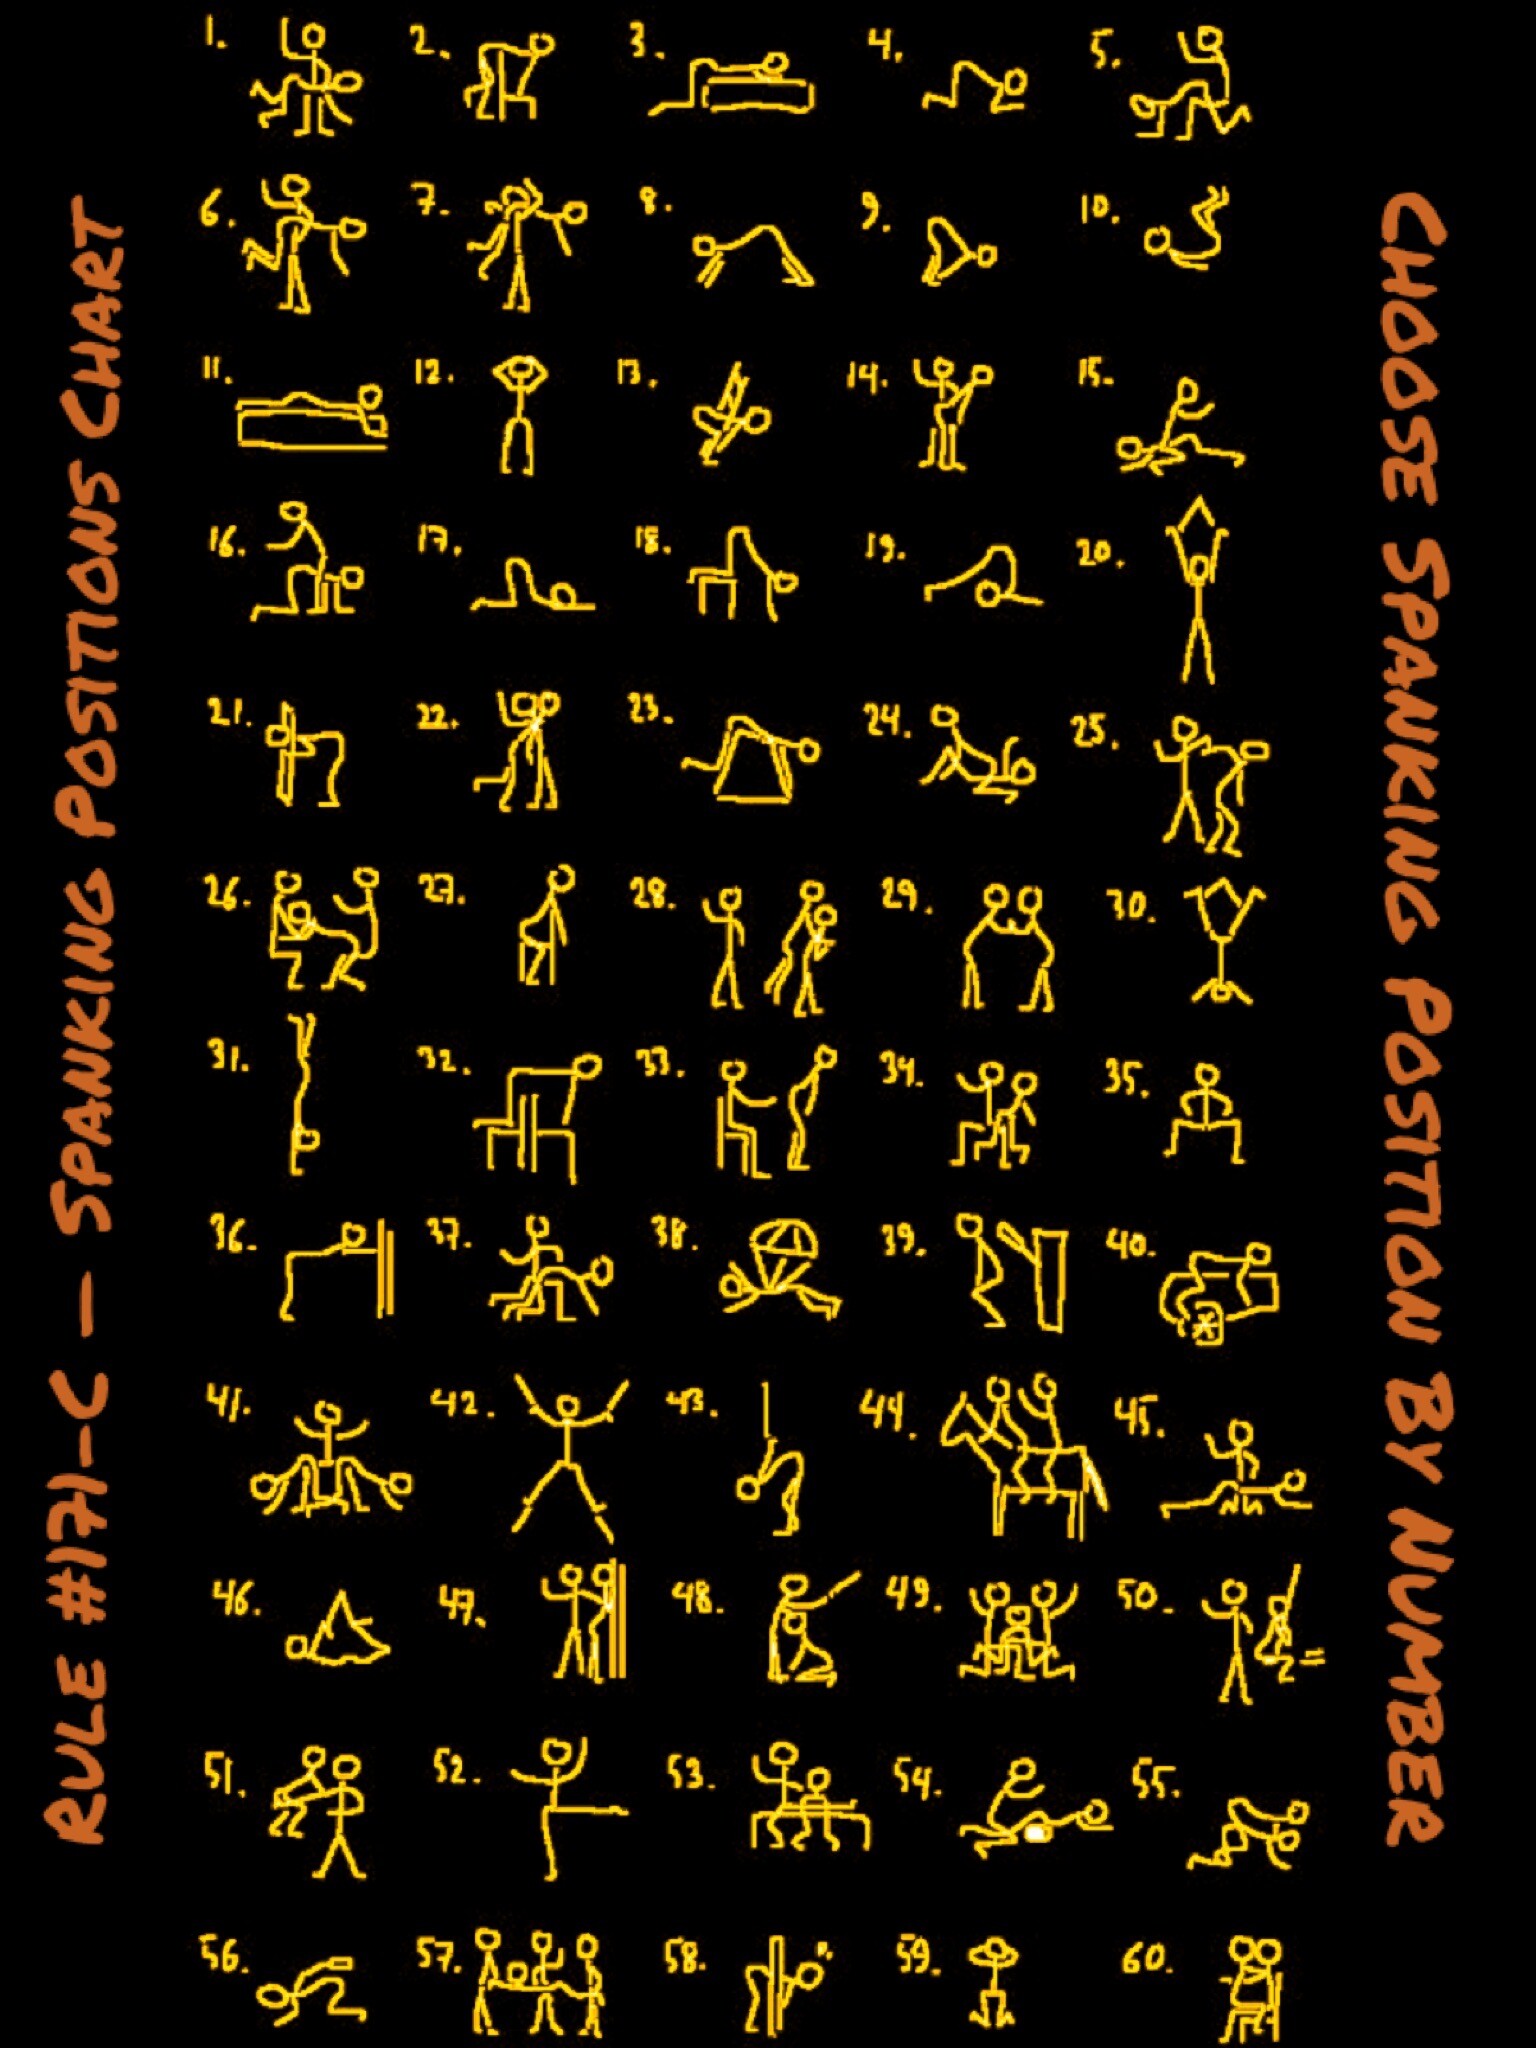 RULE #171-C — SPANKING POSITIONS CHART
1. 2. 3. 4. 5.
6. 7. 8. 9. 10.
11. 12. 13. 14. 15.
16. 17. 18. 19. 20.
21. 22. 23. 24. 25.
26. 27. 28. 29. 30.
31. 32. 33. 34. 35.
36. 37. 38. 39. 40.
41. 42. 43. 44. 45.
46. 47. 48. 49. 50.
51. 52. 53. 54. 55.
56. 57. 58. 59. 60.
CHOOSE SPANKING POSITION BY NUMBER